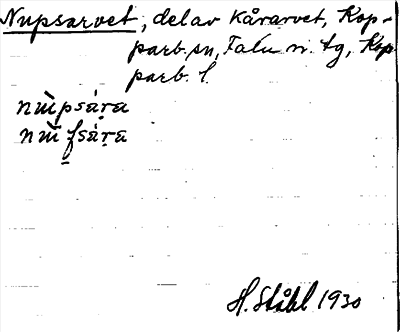 Nupsarvet, del av Kårarvet, Kop-
parb. sn, Falu n. tg, Kop
parb. l.
nùpsáṛa
nùf̱sáṛa
H. Ståhl 1930